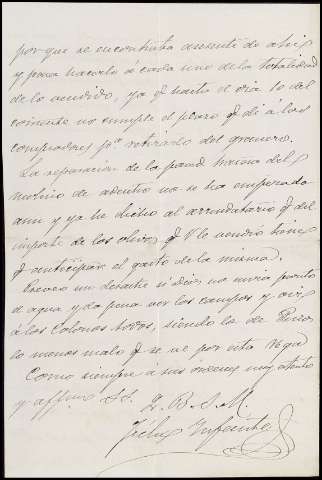 por que se encontraba ausente de ahi
y para hacerlo á cada uno de la totalidad
de lo vendido, ya q hasta el dia 10 del
corriente no cumple el plazo q di á los
compradores pª retirarlo del granero.
La reparacion de la pared harina del
molino de adentro no se ha empezado
aun y ya he dicho al arrendatario q del
importe de los olivos q V le vendió tiene
q anticipar el gasto de la misma.
un desastre si Dios no envia pronto
el agua y da pena ver los campos y oir
á los Colonos todos, siendo lo de
lo menos malo q se ve por esta Vega
Como siempre á sus ordenes muy atento
y affmo SS.
Q. B. S. M.
Félix Infante